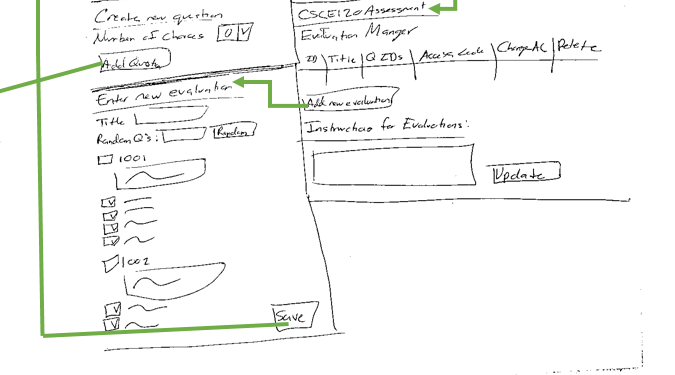 Create new question
Number of Choices 0 V
Add Question
Enter new evaluation
Title
Random Q's: Random
1001
1002
Save
CSCE120 Assessment
Evaluation Manger
ID Title Q IDs Access Code Change AC Delete
Add new evaluation
Instructions for Evaluations:
Update